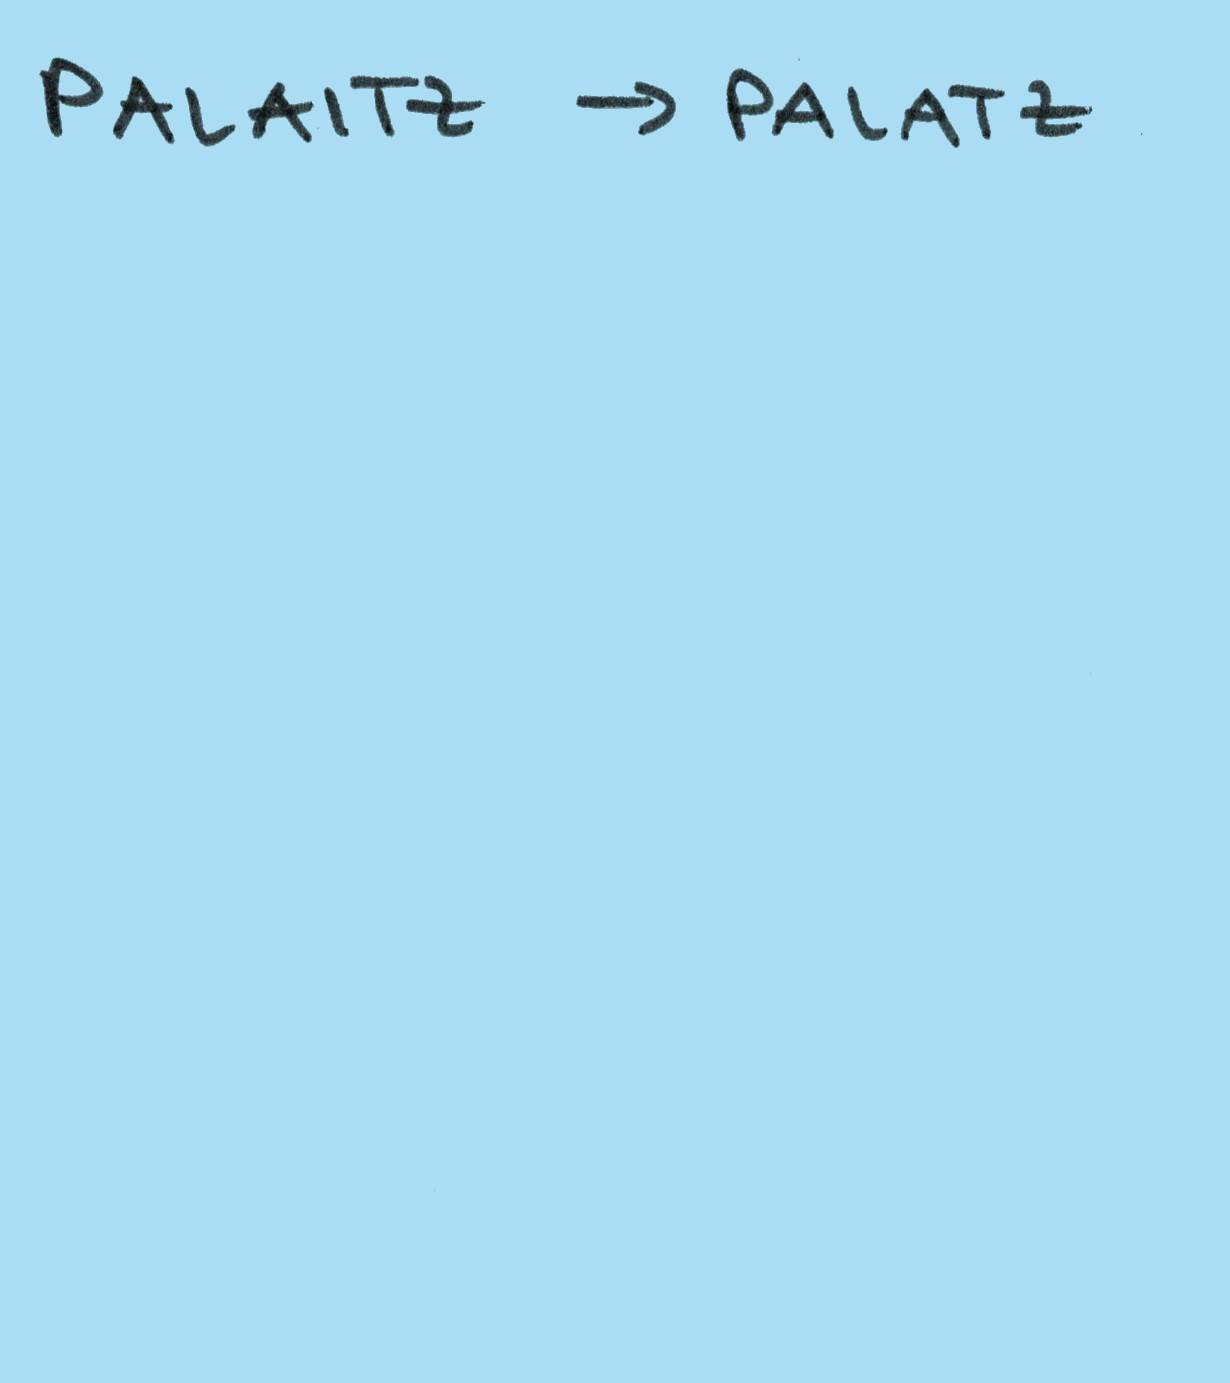 PALAITZ → PALATZ